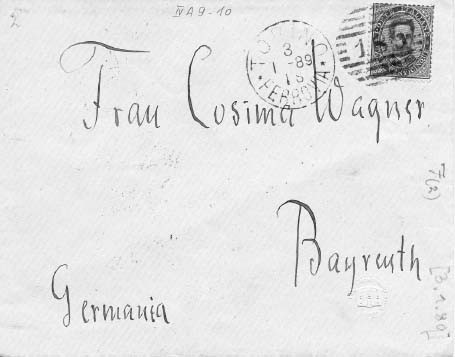 IV A 9-10
TORINO
3
1-89
1S
FERROVIA
Frau Cosima Wagner
Bayreuth
Germania
[3.1.89]